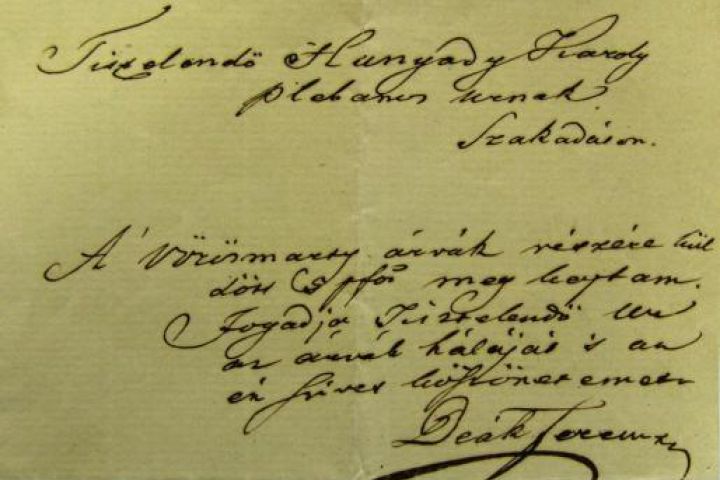 Tisztelendő Hunyady Károly
plebanus urnak
Szakadáson.
A' Vörösmarty árvák részére kül
dött 5 pfot meg kaptam.
Fogadja Tisztelendő Ur
az árvák háláját is az
én szives köszönetemet
Deák Ferencz